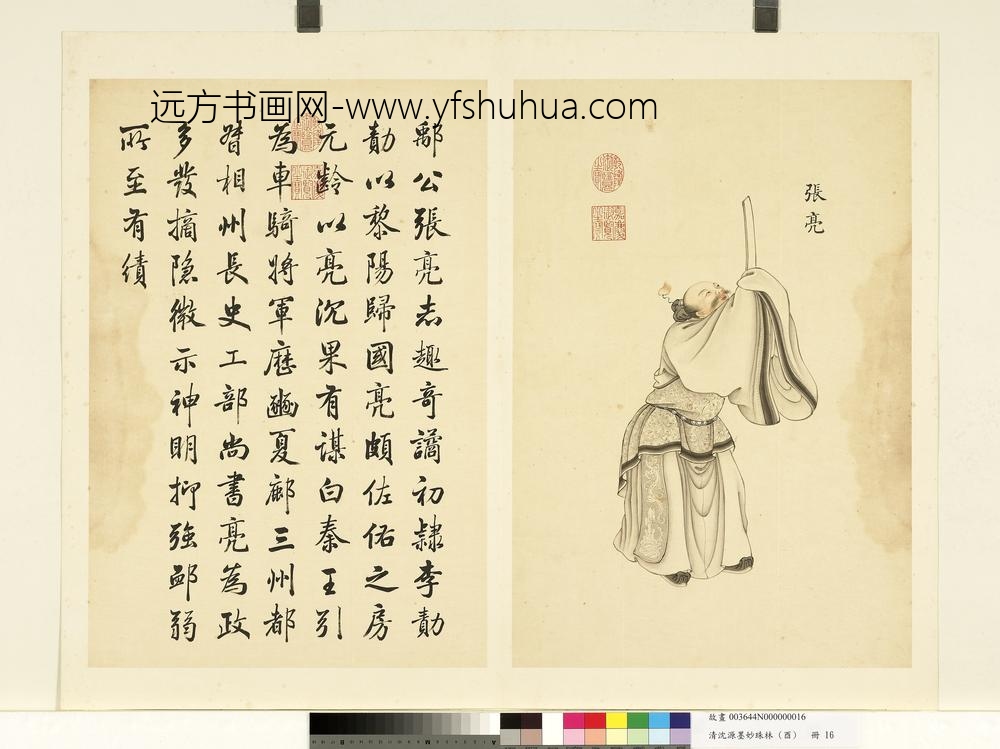 远方书画网-www.yfshuhua.com
張亮
乾隆御覽之寶
嘉慶御覽之寶
鄅公張亮志趣奇譎初隸李勣
勣以黎陽歸國亮頗佐佑之房
元齡以亮沉果有謀白秦王引
為車騎將軍歷豳夏鄜三州都
督相州長史工部尚書亮為政
多發摘隐微示神明抑強卹弱
所至有績
故畫 003644N000000016
清沈源墨妙珠林（酉） 冊 16